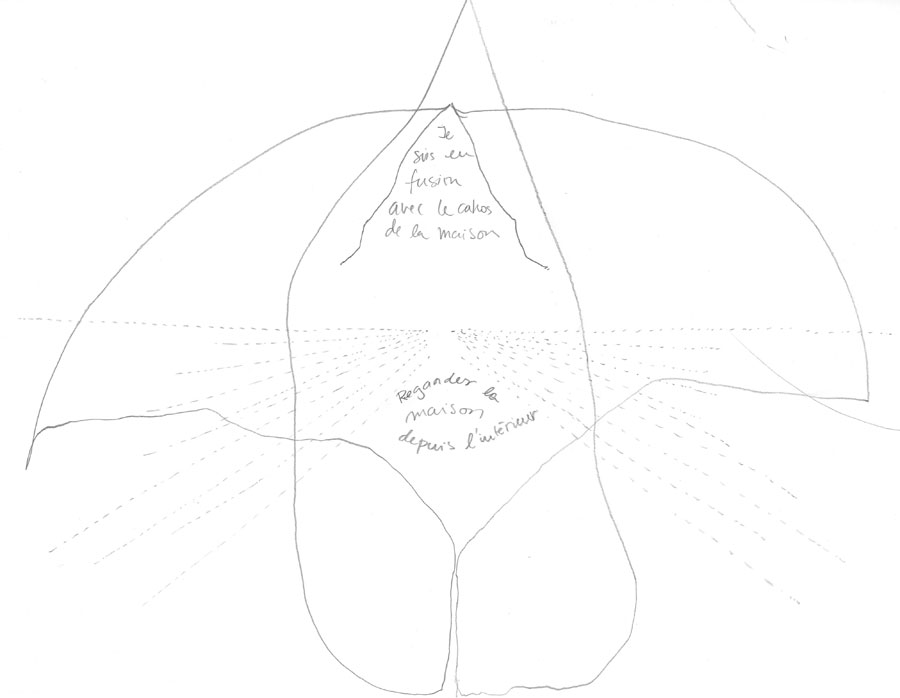 Je
suis en
fusion
avec le cahos
de la maison
Regarder la
maison
depuis l'intérieur